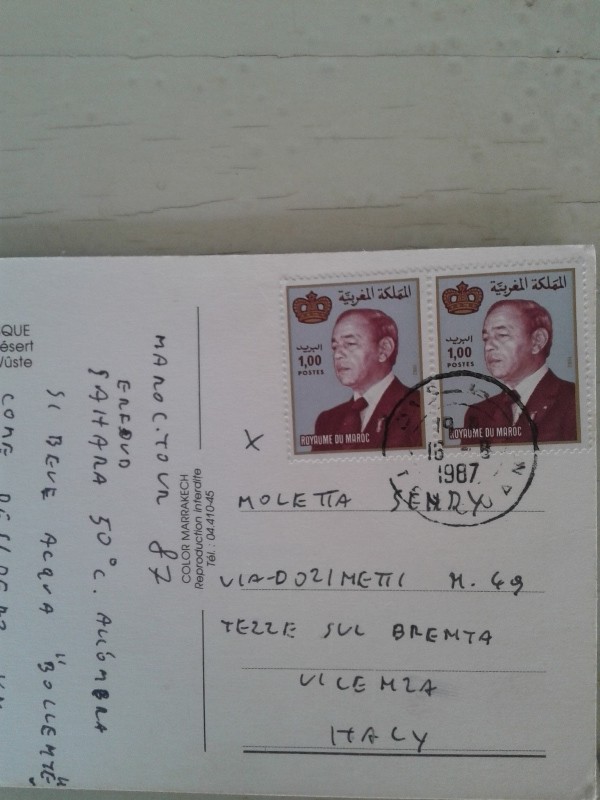 QUE
ésert
MAROC.TOUR 87
ERFOUD
SAHARA 50°C. ALLOMBRA
SI BEVE ACQUA "BOLLENTE"
COME
COLOR MARRAKECH
Reproduction interdite
Tél.: 04.410-45
المملكة المغربية
البريد
1,00
POSTES
ROYAUME DU MAROC
المملكة المغربية
البريد
1,00
POSTES
ROYAUME DU MAROC
1987
X
MOLETTA
VIA-DOZIMETTI N. 49
TEZZE SUL BRENTA
VICENZA
ITALY